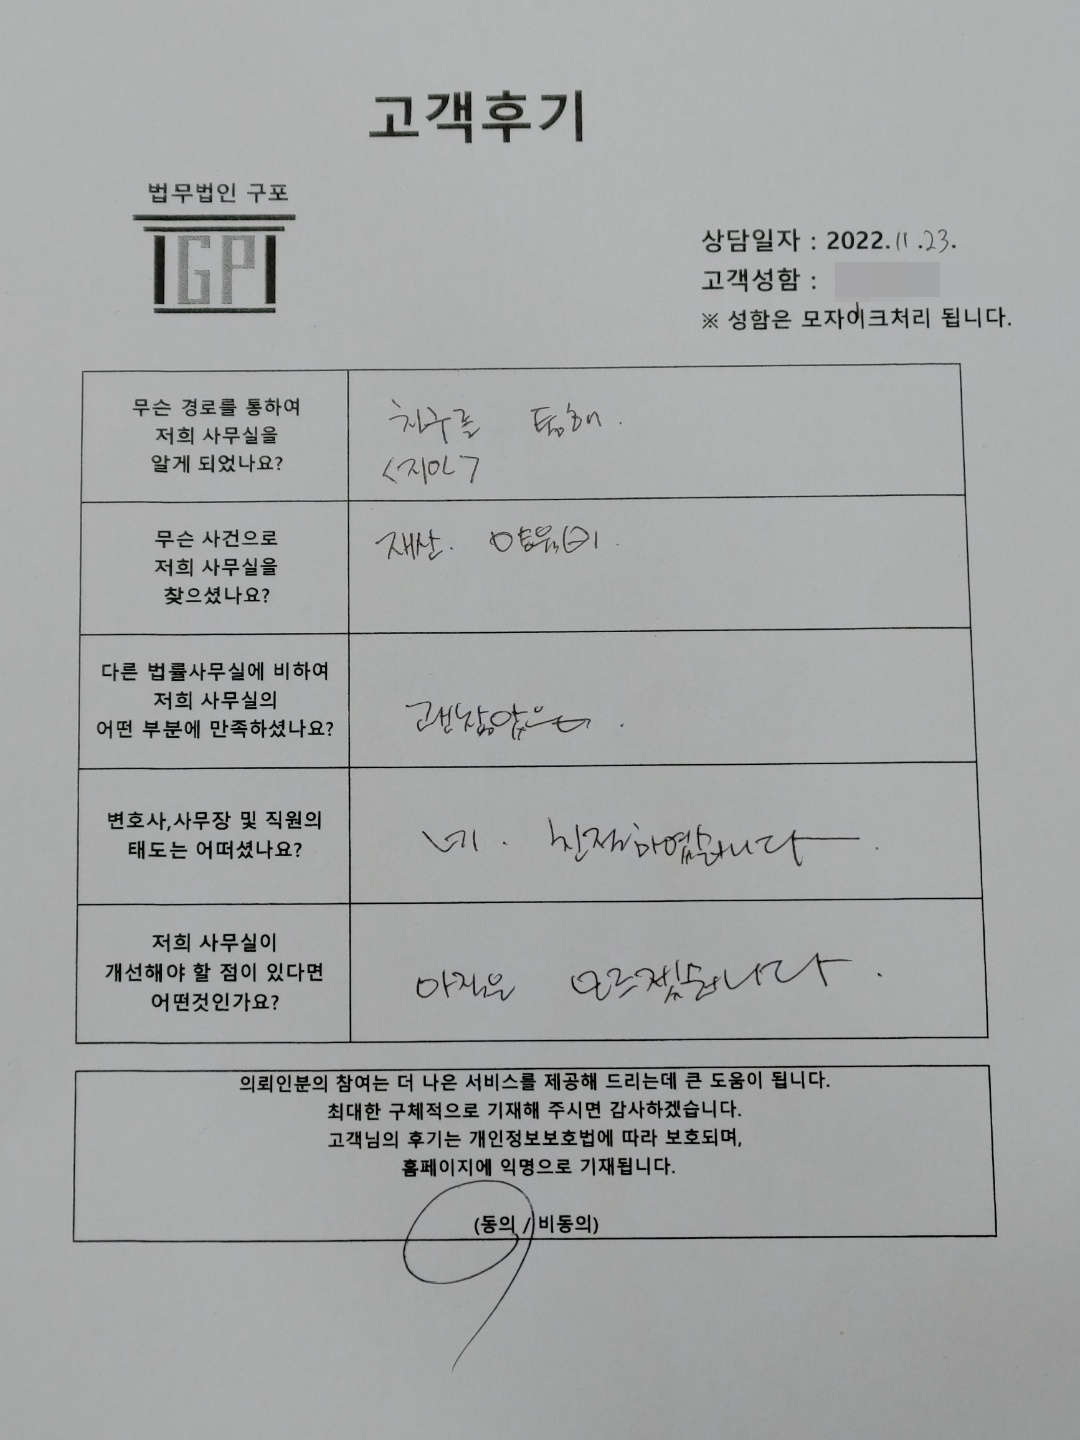 고객후기
법무법인 구포
IGPI
상담일자 : 2022.11.23.
고객성함 :
※ 성함은 모자이크처리 됩니다.
무슨 경로를 통하여
저희 사무실을
알게 되었나요?
친구를 통해.
<지인>
무슨 사건으로
저희 사무실을
찾으셨나요?
재산.
다른 법률사무실에 비하여
저희 사무실의
어떤 부분에 만족하셨나요?
변호사,사무장 및 직원의
태도는 어떠셨나요?
네. 친절하였습니다.
저희 사무실이
개선해야 할 점이 있다면
어떤것인가요?
아직은 모르겠습니다.
의뢰인분의 참여는 더 나은 서비스를 제공해 드리는데 큰 도움이 됩니다.
최대한 구체적으로 기재해 주시면 감사하겠습니다.
고객님의 후기는 개인정보보호법에 따라 보호되며,
홈페이지에 익명으로 기재됩니다.
(동의 / 비동의)